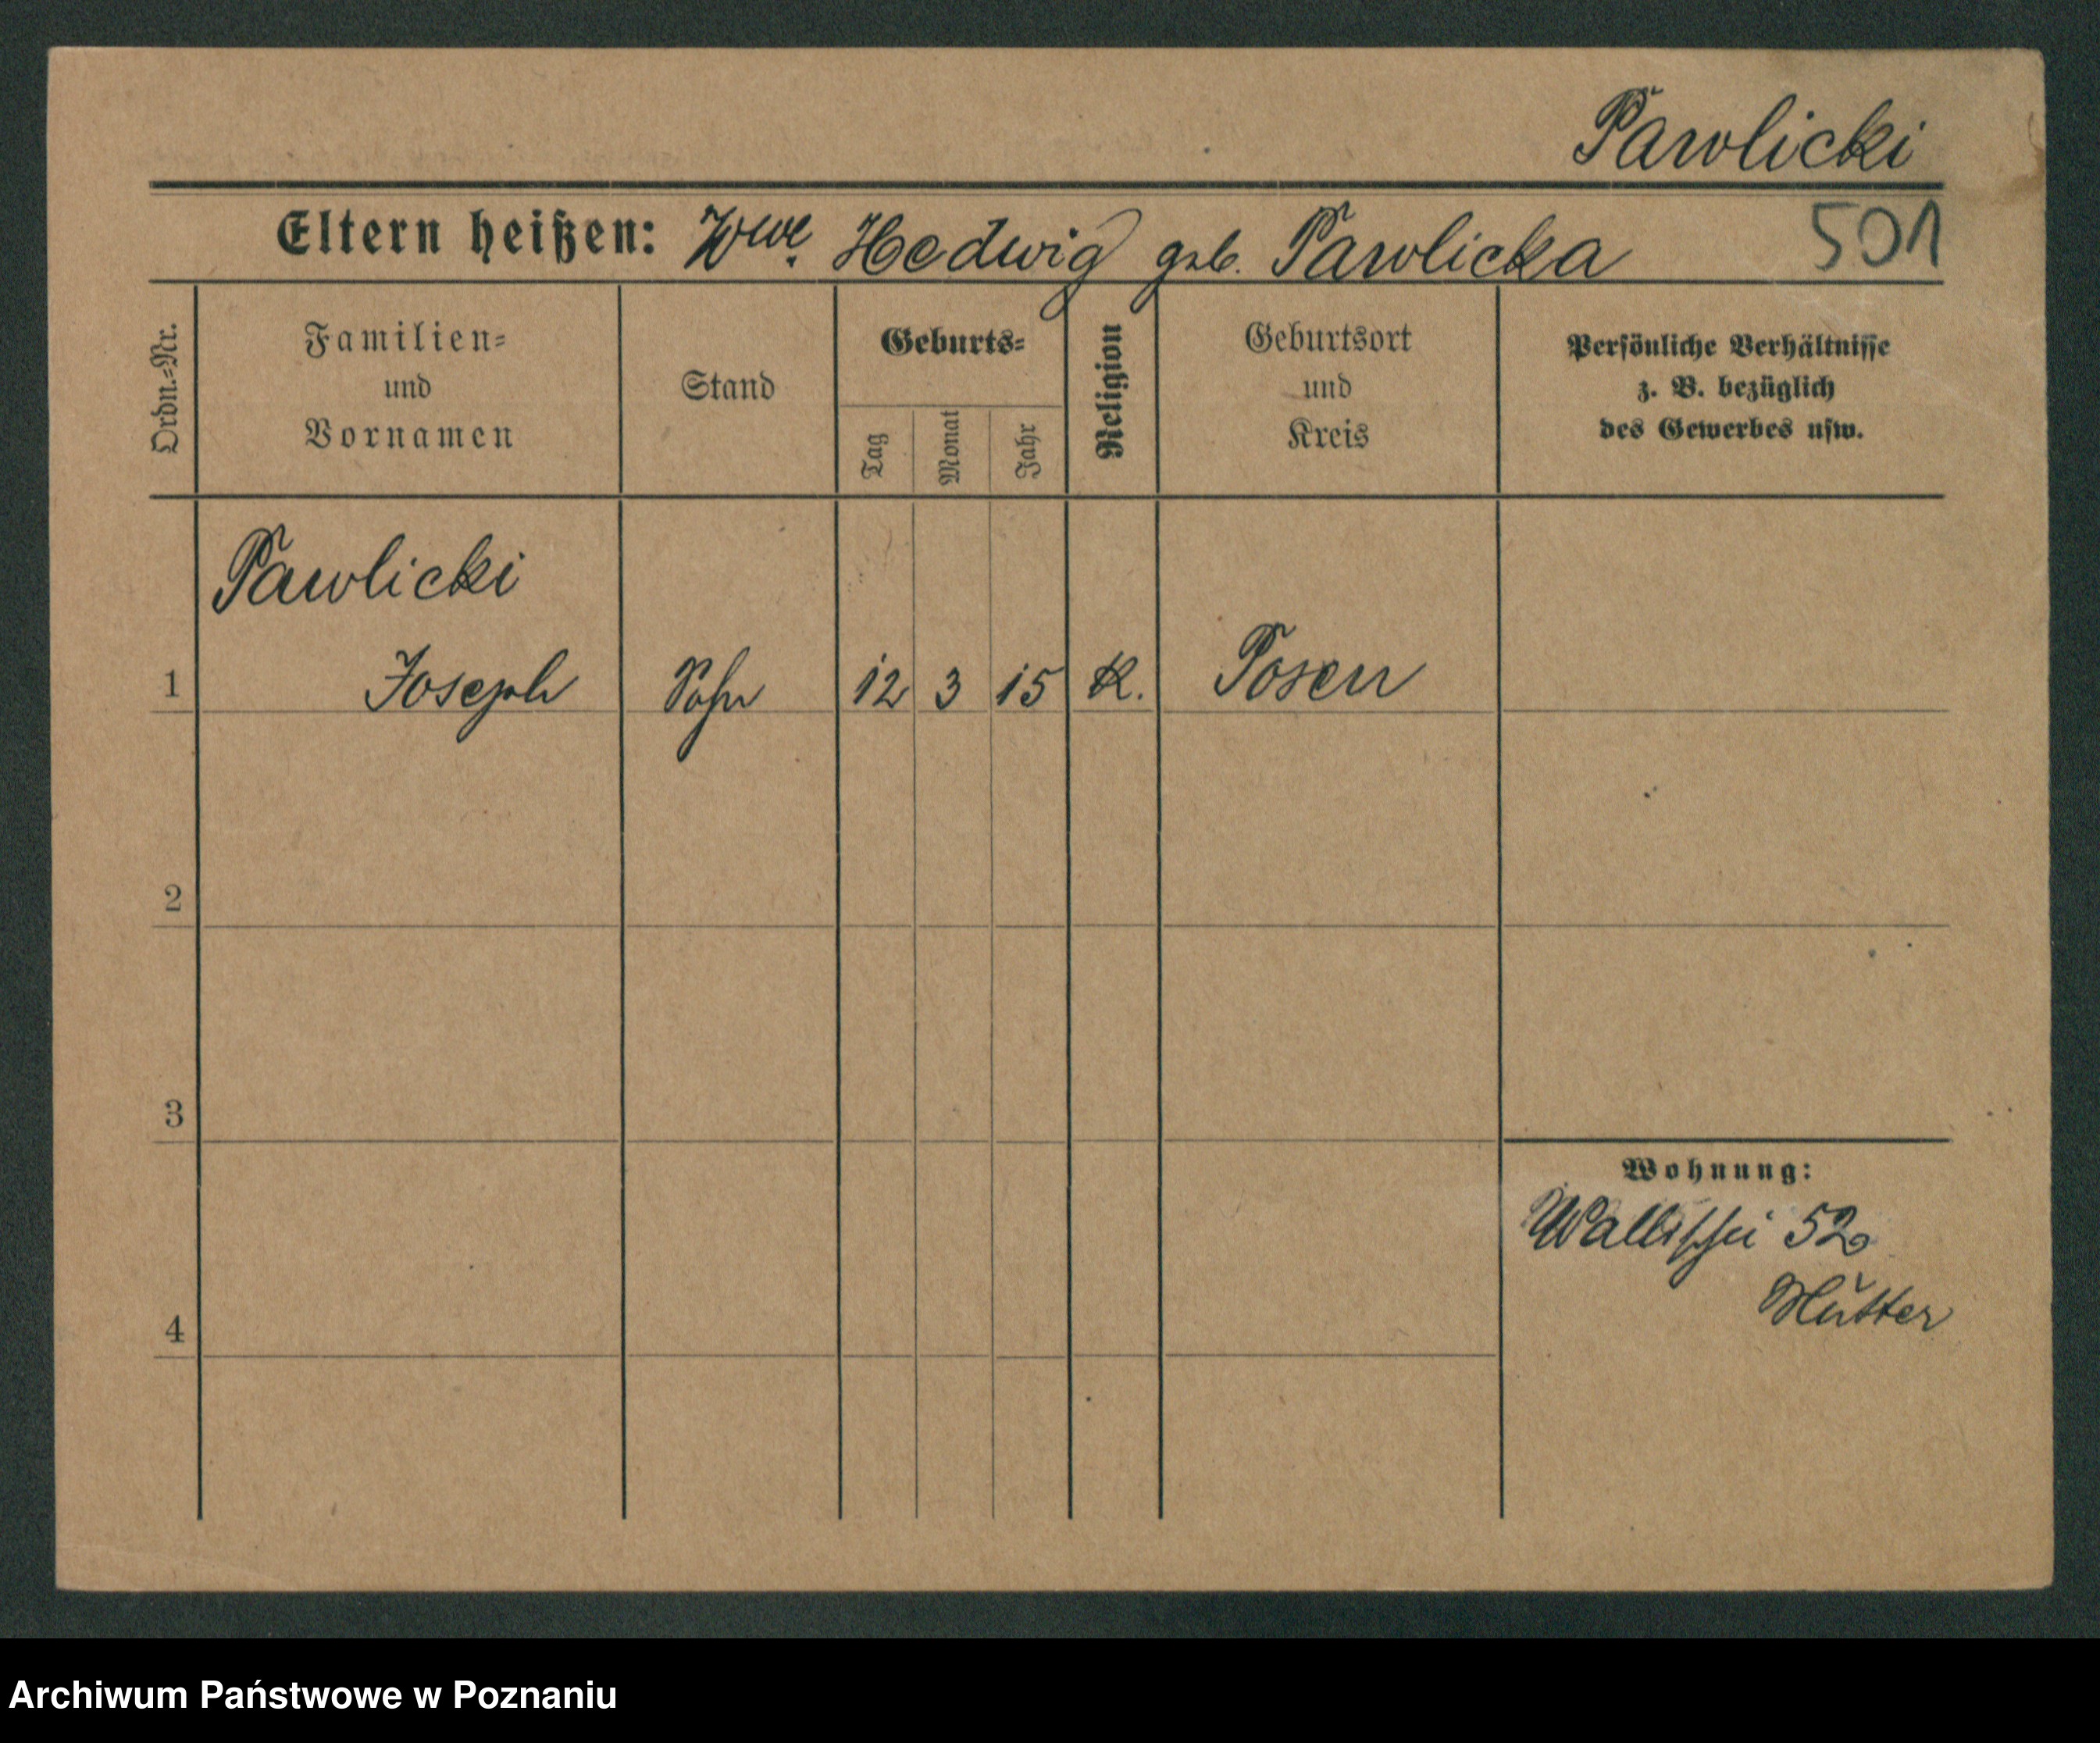 Pawlicki
Eltern heißen: Wwe. Hedwig geb. Pawlicka 501
Ordn.-Nr.
Familien-
und
Vornamen
Stand
Geburts-
Tag
Monat
Jahr
Religion
Geburtsort
und
Kreis
Persönliche Verhältnisse
z. B. bezüglich
des Gewerbes usw.
Pawlicki
1 Joseph Sohn 12 3 15 K. Posen
2
3
Wohnung:
Wallischei 52
Mutter
4
Archiwum Państwowe w Poznaniu